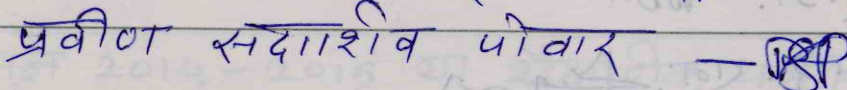 प्रवीण सदाशिव पोवार —